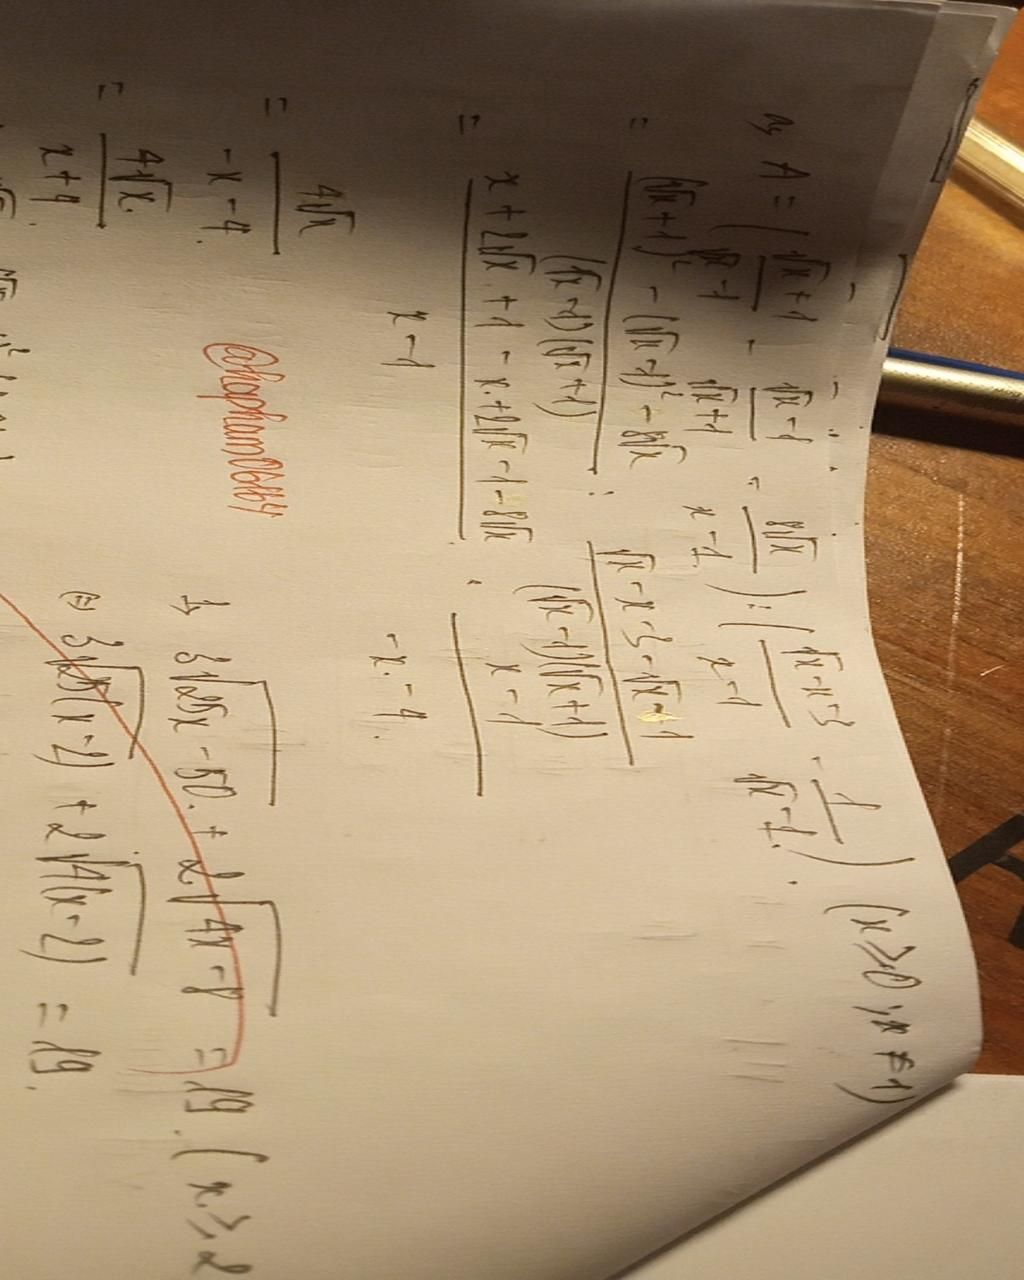 a, A = ( (√x+1)/(√x-1) - (√x-1)/(√x+1) - 8√x/(x-1) ) : ( (√x-x-3)/(x-1) - 1/(√x-1) ). (x≥0; x≠1)
= ((√x+1)² - (√x-1)² - 8√x)/((√x-1)(√x+1)) : (√x-x-3-√x-1)/((√x-1)(√x+1))
= (x+2√x+1-x+2√x-1-8√x)/(x-1) · (x-1)/(-x-4).
= 4√x/(-x-4).
= 4√x/(x+4).
@hapham0684
b, 3√(25x-50) + 2√(4x-8) = 19. (x≥2
⇔ 3√(25(x-2)) + 2√(4(x-2)) = 19.